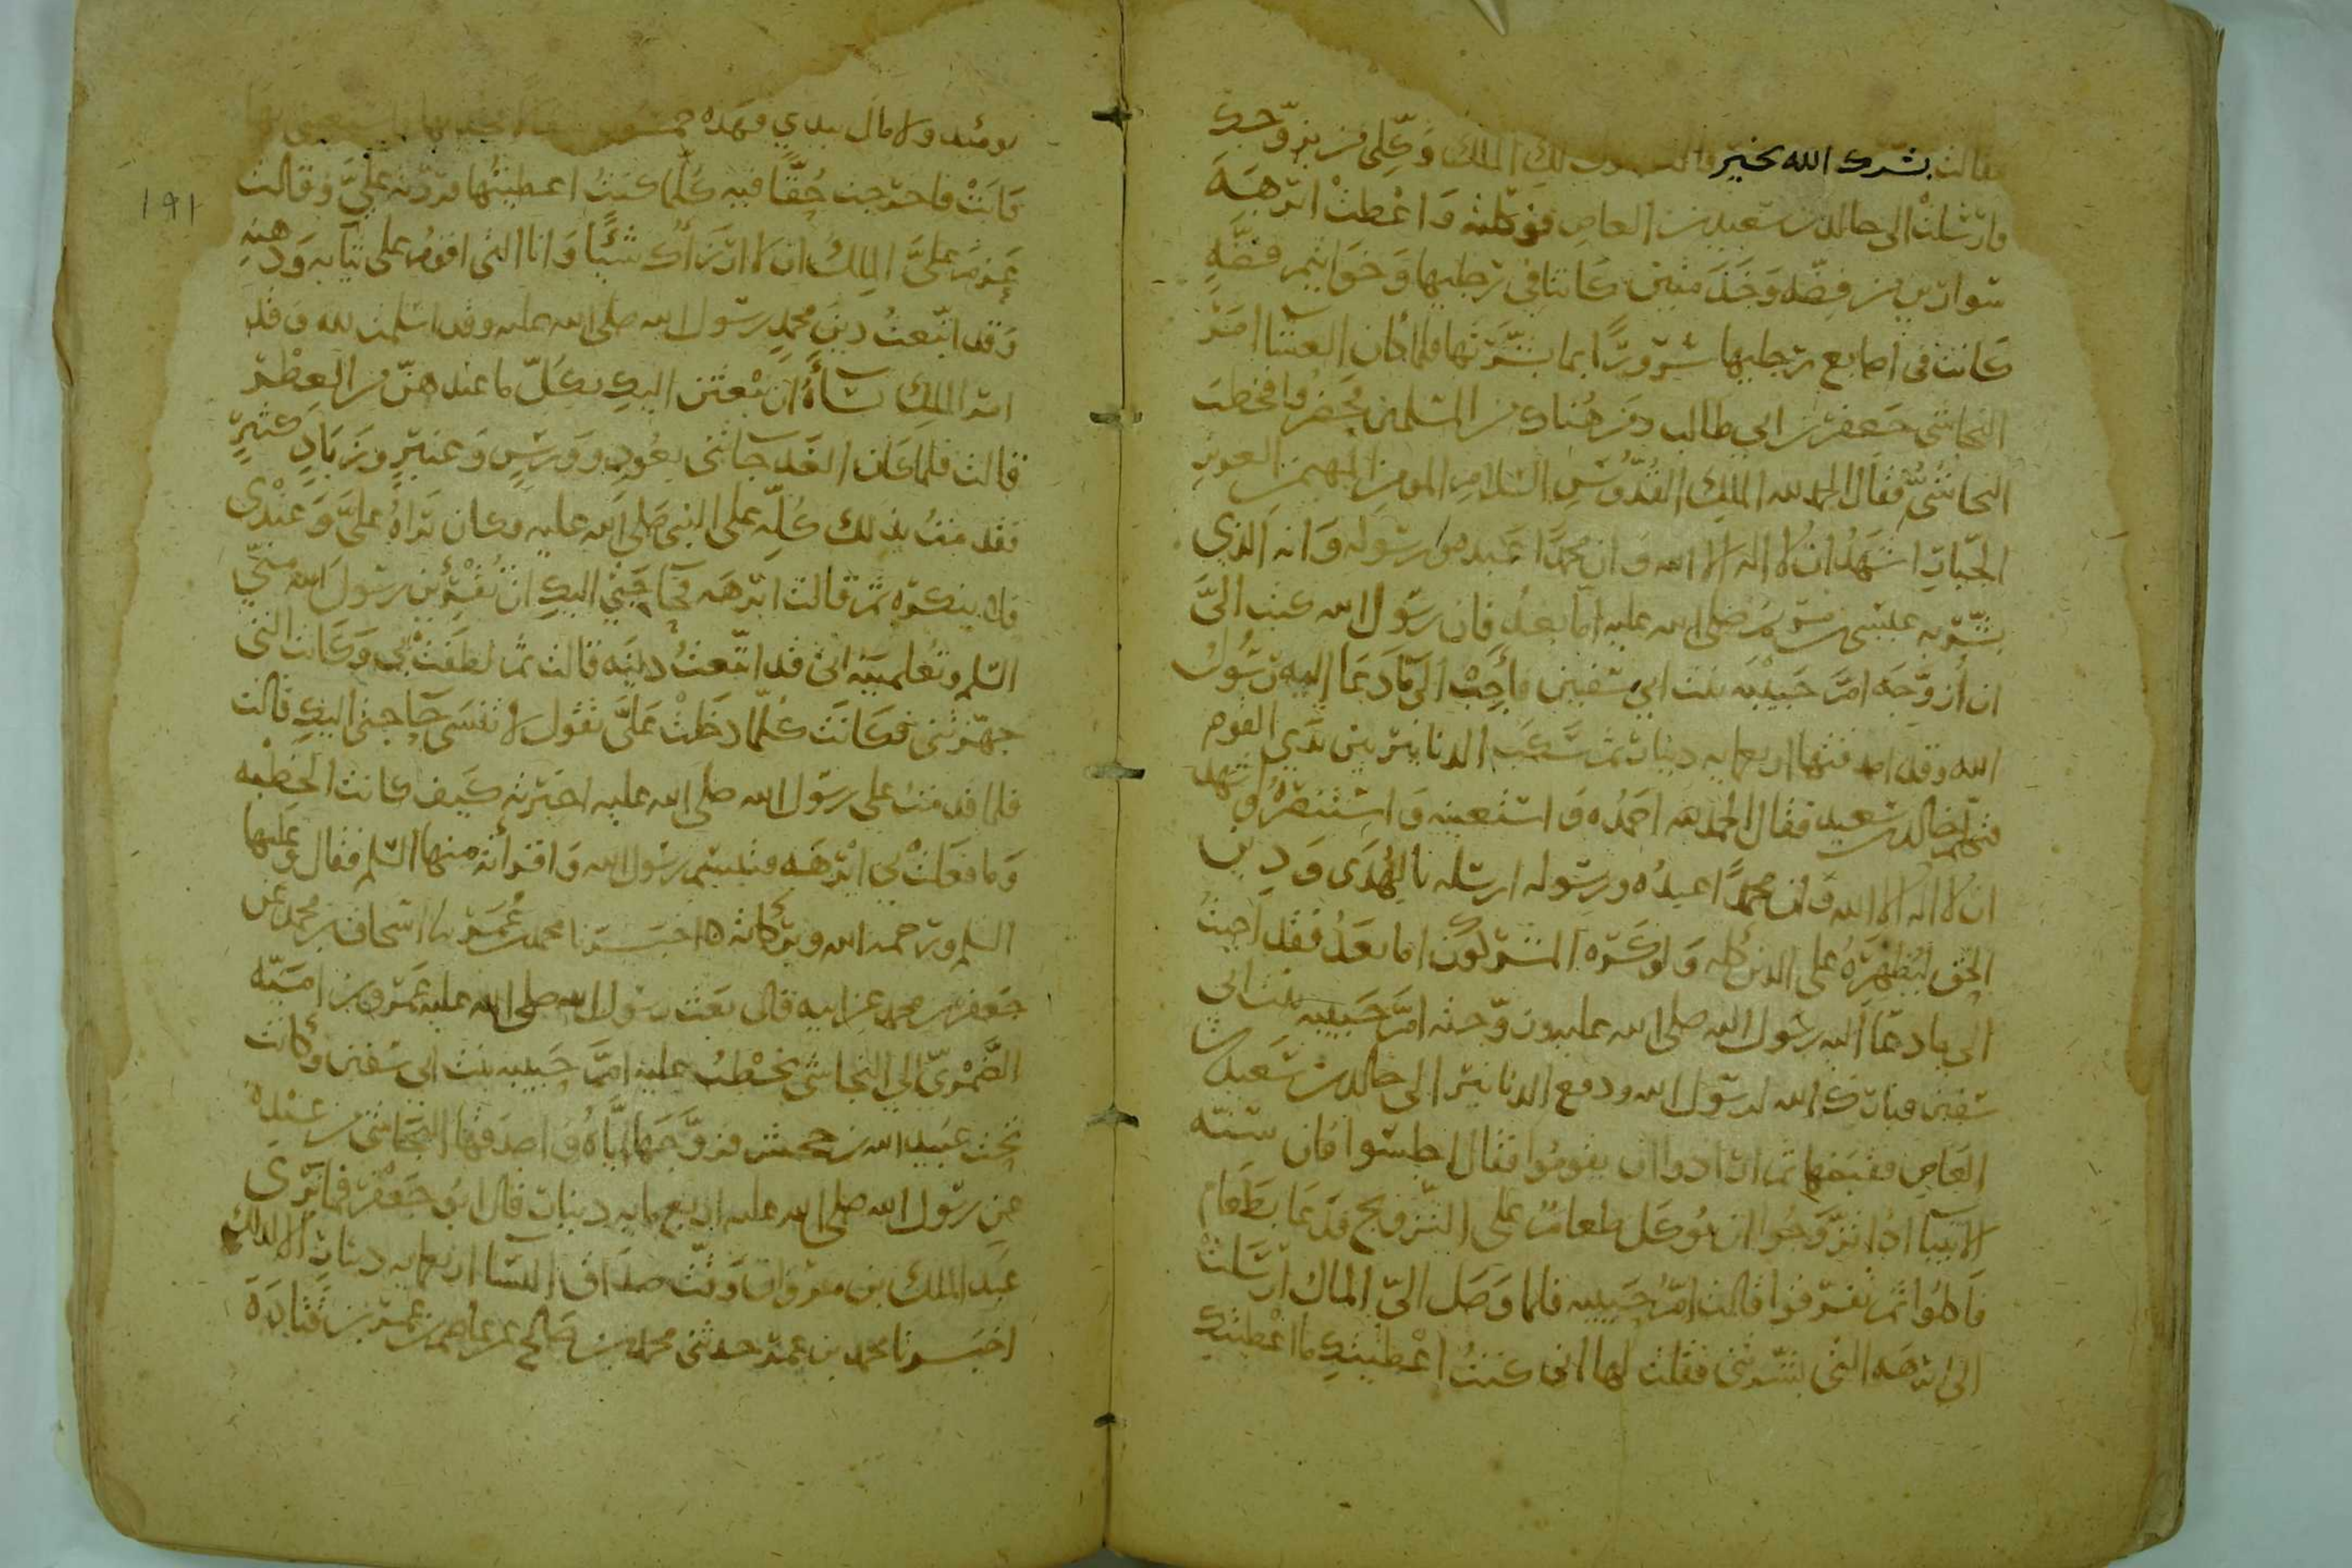 فقالت بشرك الله بخير قالت يقول لك الملك وكلي من يزوجك
فارسلت الى خالد بن سعيد بن العاص فوكلته واعطت ابرهه
سوارين من فضه وخدمتين كانتا في رجليها وخواتيم فضه
كانت في اصابع رجليها سرورا بما بشرتها فلما كان العشا امر
النجاشي جعفر بن ابي طالب ومن هناك من المسلمين فحضروا فخطب
النجاشي فقال الحمد لله الملك القدوس السلام المومن المهيمن العزيز
الجبار اشهد ان لا اله الا الله وان محمدا عبده ورسوله وانه الذي
بشر به عيسى بن مريم صلى الله عليه اما بعد فان رسول الله كتب الي
ان ازوجه ام حبيبه بنت ابي سفين فاجبت الى ما دعا اليه رسول
الله وقد اصدقتها اربعمايه دينار ثم سكب الدنانير بين يدي القوم
فتكلم خالد بن سعيد فقال الحمد لله احمده واستعينه واستنصره واشهد
ان لا اله الا الله وان محمدا عبده ورسوله ارسله بالهدى ودين
الحق ليظهره على الدين كله ولو كره المشركون اما بعد فقد اجبت
الى ما دعا اليه رسول الله صلى الله عليه وزوجته ام حبيبه بنت ابي
سفين فبارك الله لرسول الله ودفع الدنانير الى خالد بن سعيد بن
العاص فقبضها ثم ارادوا ان يقوموا فقال اجلسوا فان سنه
الانبيا اذا تزوجوا ان يوكل طعام على التزويج فدعا بطعام
فاكلوا ثم تفرقوا قالت ام حبيبه فلما وصل الي المال ارسلت
الى ابرهه التي بشرتني فقلت لها اني كنت اعطيتك ما اعطيتك
يومئذ ولا مال بيدي فهذه خمسون مثقالا فخذيها فاستعيني بها
فابت فاخرجت حقا فيه كلما كنت اعطيتها فردته علي وقالت
عزم علي الملك ان لا ارزاك شيئا وانا التي اقوم على ثيابه ودهنه
وقد اتبعت دين محمد رسول الله صلى الله عليه وقد اسلمت لله وقد
امر الملك نساءه ان يبعثن اليك بكل ما عندهن من العطر
قالت فلما كان الغد جاتني بعود وورس وعنبر وزباد كثير
فقدمت بذلك كله على النبي صلى الله عليه وكان يراه علي وعندي
فلا ينكره ثم قالت ابرهه فحاجتي اليك ان تقرئين رسول الله مني
السلم وتعلمينه اني قد اتبعت دينه قالت ثم لطفت بي وكانت التي
جهزتني فكانت كلما دخلت علي تقول لا تنسي حاجتي اليك قالت
فلما قدمت على رسول الله صلى الله عليه اخبرته كيف كانت الخطبه
وما فعلت بي ابرهه فتبسم رسول الله واقراته منها السلم فقال وعليها
السلم ورحمه الله وبركاته ه اخبرنا محمد بن عمر نا اسحاق بن محمد عن
جعفر بن محمد عن ابيه قال بعث رسول الله صلى الله عليه عمرو بن اميه
الضمري الى النجاشي يخطب عليه ام حبيبه بنت ابي سفين وكانت
تحت عبيد الله بن جحش فزوجها اياه واصدقها النجاشي من عنده
عن رسول الله صلى الله عليه اربع مايه دينار قال ابو جعفر فما نرى
عبد الملك بن مروان وقت صداق النسا اربعمايه دينار الا لذلك
اخبرنا محمد بن عمر حدثني محمد بن صالح عن عاصم بن عمر بن قتاده
١٩١